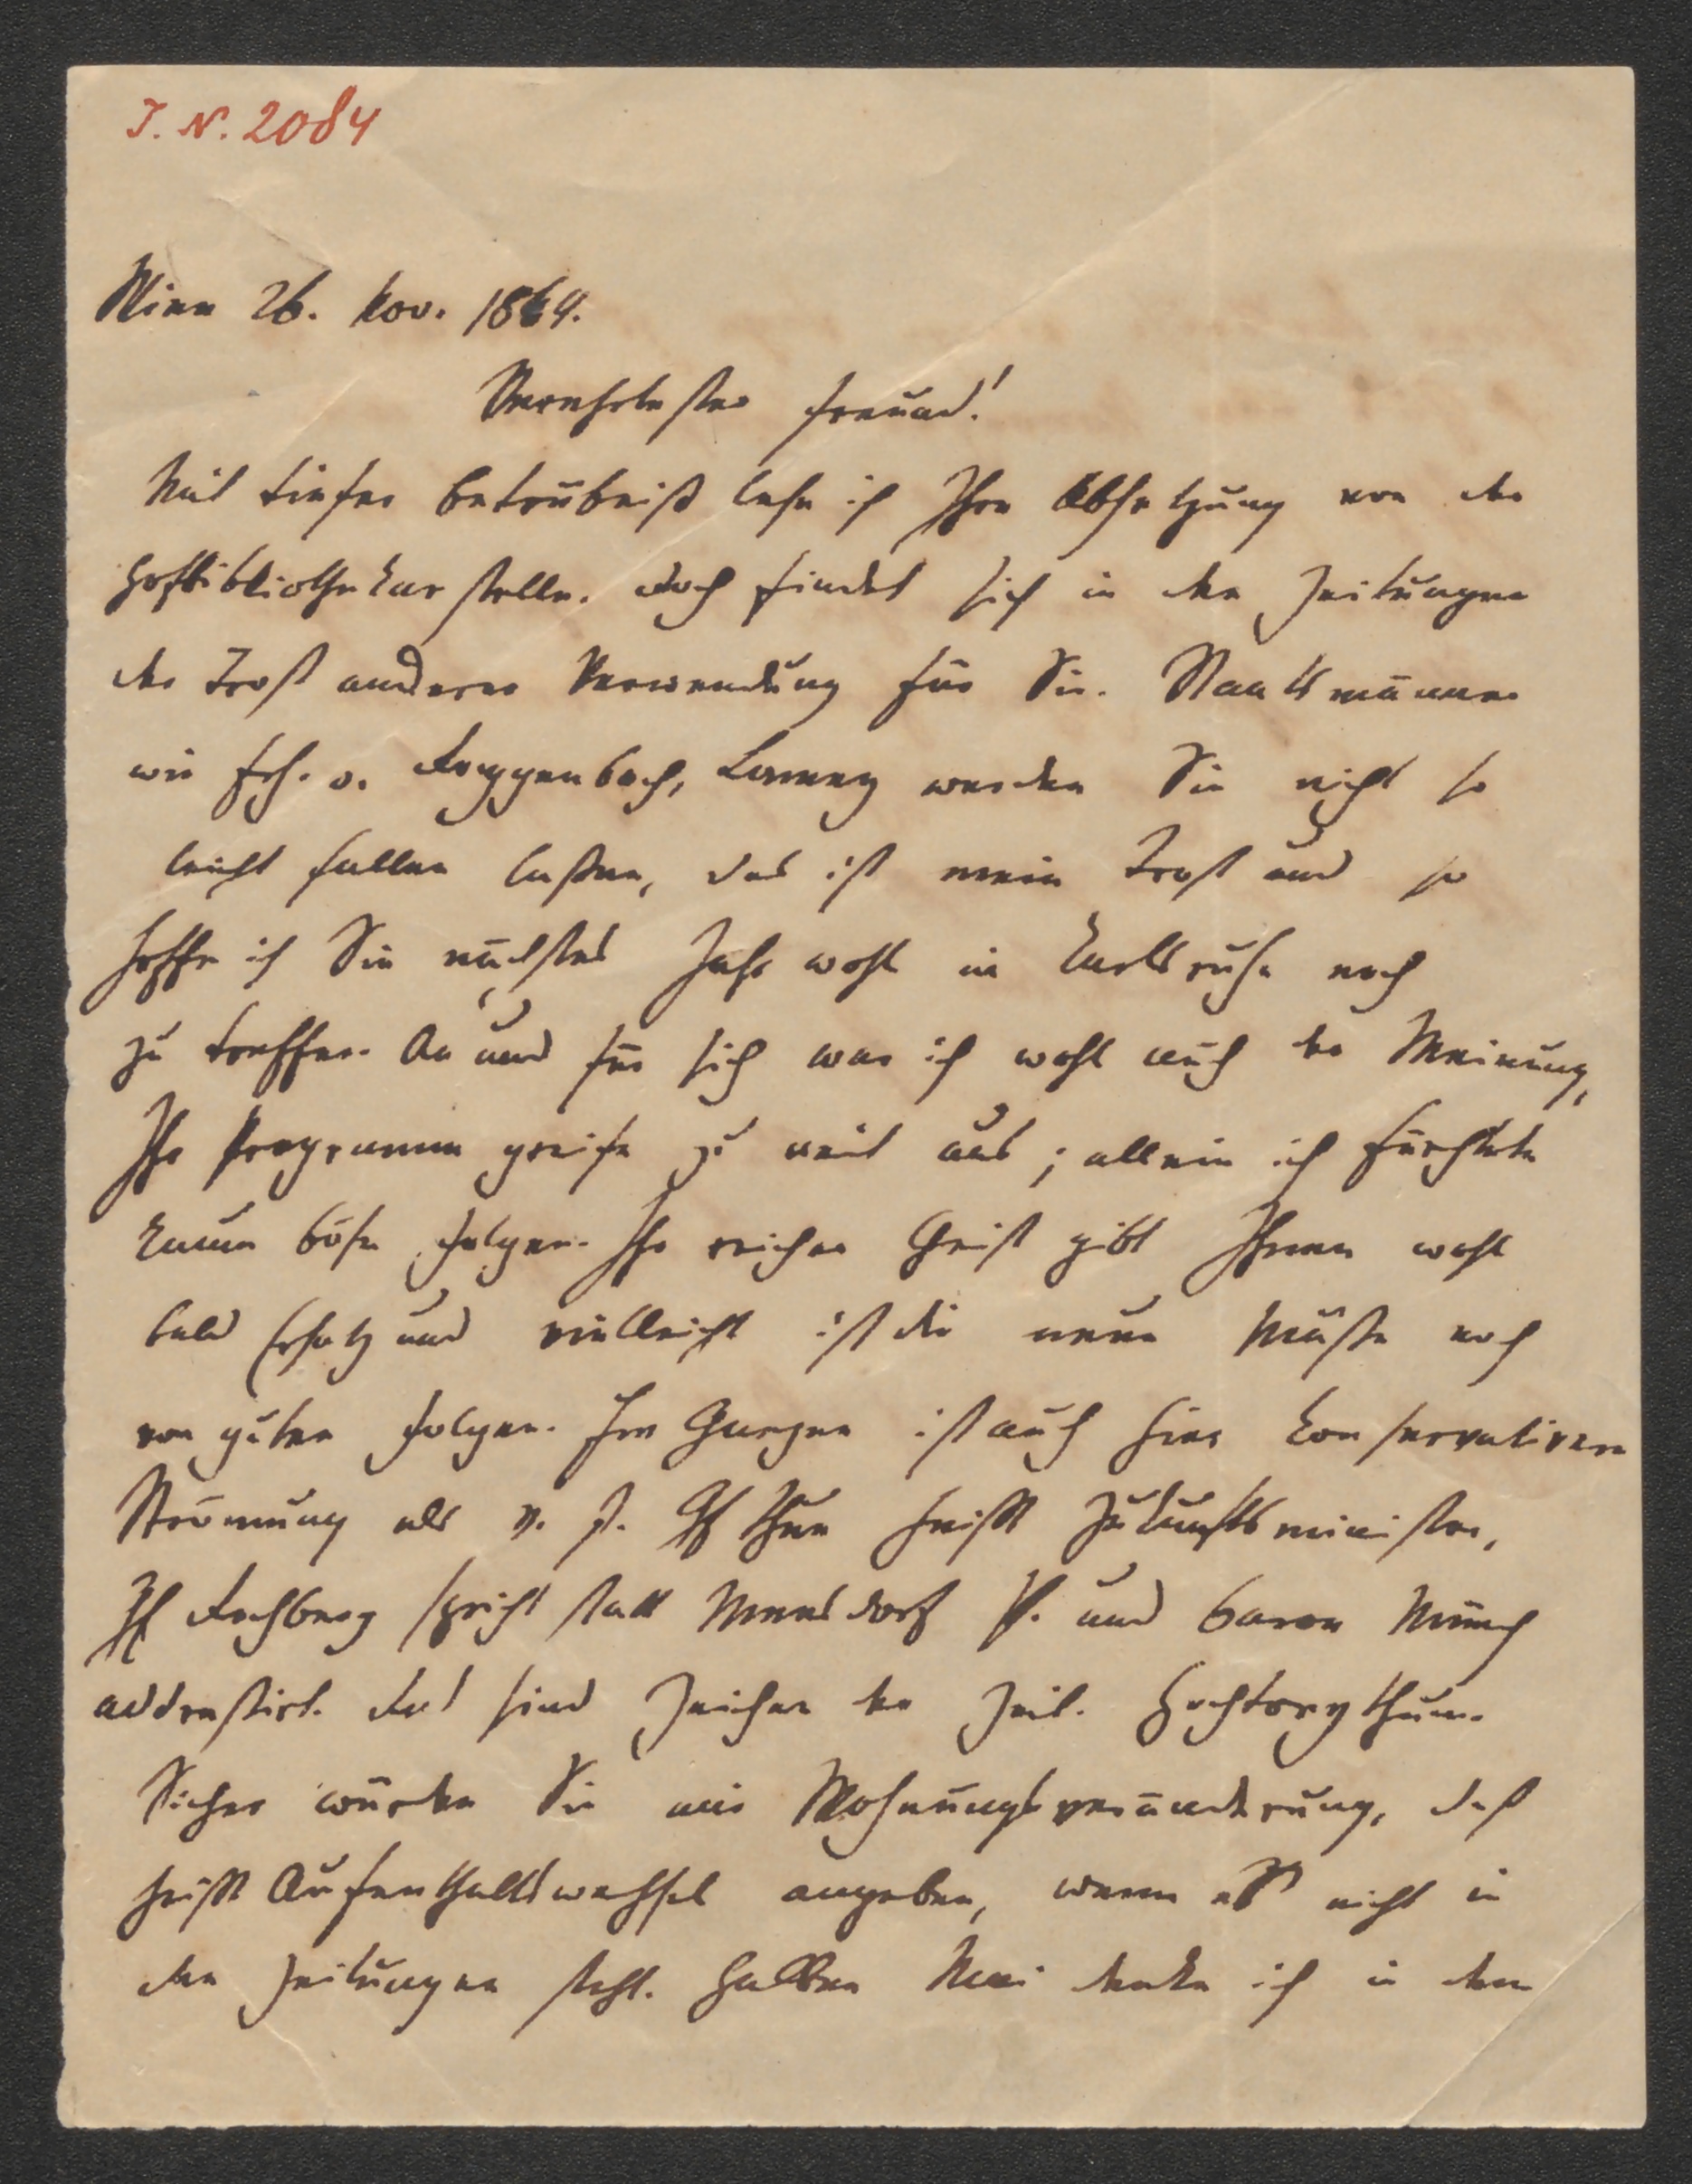 I. N. 2084
Wien 26. Nov. 1864.
Verehrtester Freund!
Mit tiefer Betrübniß lese ich Ihre Absetzung von der
Hofbibliothekarstelle. Doch findet sich in den Zeitungen
der Trost anderer Verwendung für Sie. Staatsmänner
wie Frh. v. Roggenbach, Lamey werden Sie nicht so
leicht fallen laßen, das ist mein Trost und so
hoffe ich Sie nächstes Jahr wohl in Karlsruhe noch
zu treffen. An und für sich war ich wohl auch der Meinung,
Ihr Programm greife zu weit aus; allein ich fürchtete
kaum böse Folgen. Ihr reicher Geist gibt Ihnen wohl
bald Ersatz und vielleicht ist die neue Muße noch
von guten Folgen. Im Ganzen ist auch hier konservativere
Strömung als v. J. Gf Thun heißt Zukunftsminister,
Gf Rechberg spricht statt Mensdorf P. und Baron Münch
addreßirt. Das sind Zeichen der Zeit. Hochtorythum.
Sicher würden Sie mir Wohnungsveränderung, das
heißt Aufenthaltswechsel angeben, wenn es nicht in
den Zeitungen steht. Halben Mai denke ich in dem